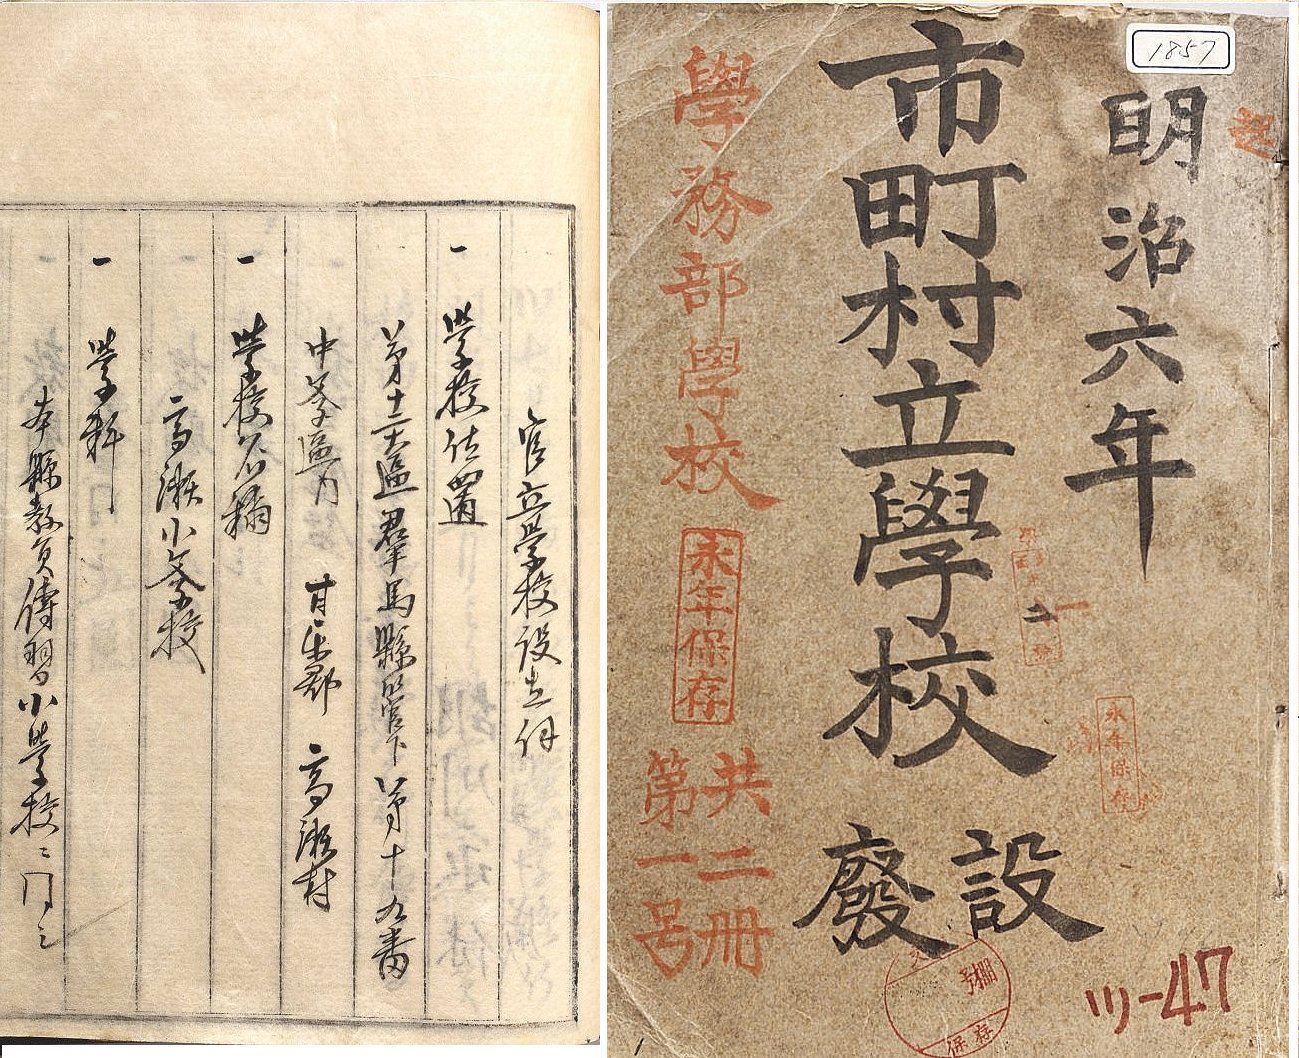 1857
明治六年
市町村立學校
設廢
學務部學校
永年保存
共二冊
第一号
永年保存
保存
ツ-47
官立學校設立伺
一 學校位置
第十二大區群馬縣管下第十九番
中學區内 甘楽郡 高瀬村
一 學校名稱
高瀬小學校
一 學科
本縣教員傳習小學校ニ同シ